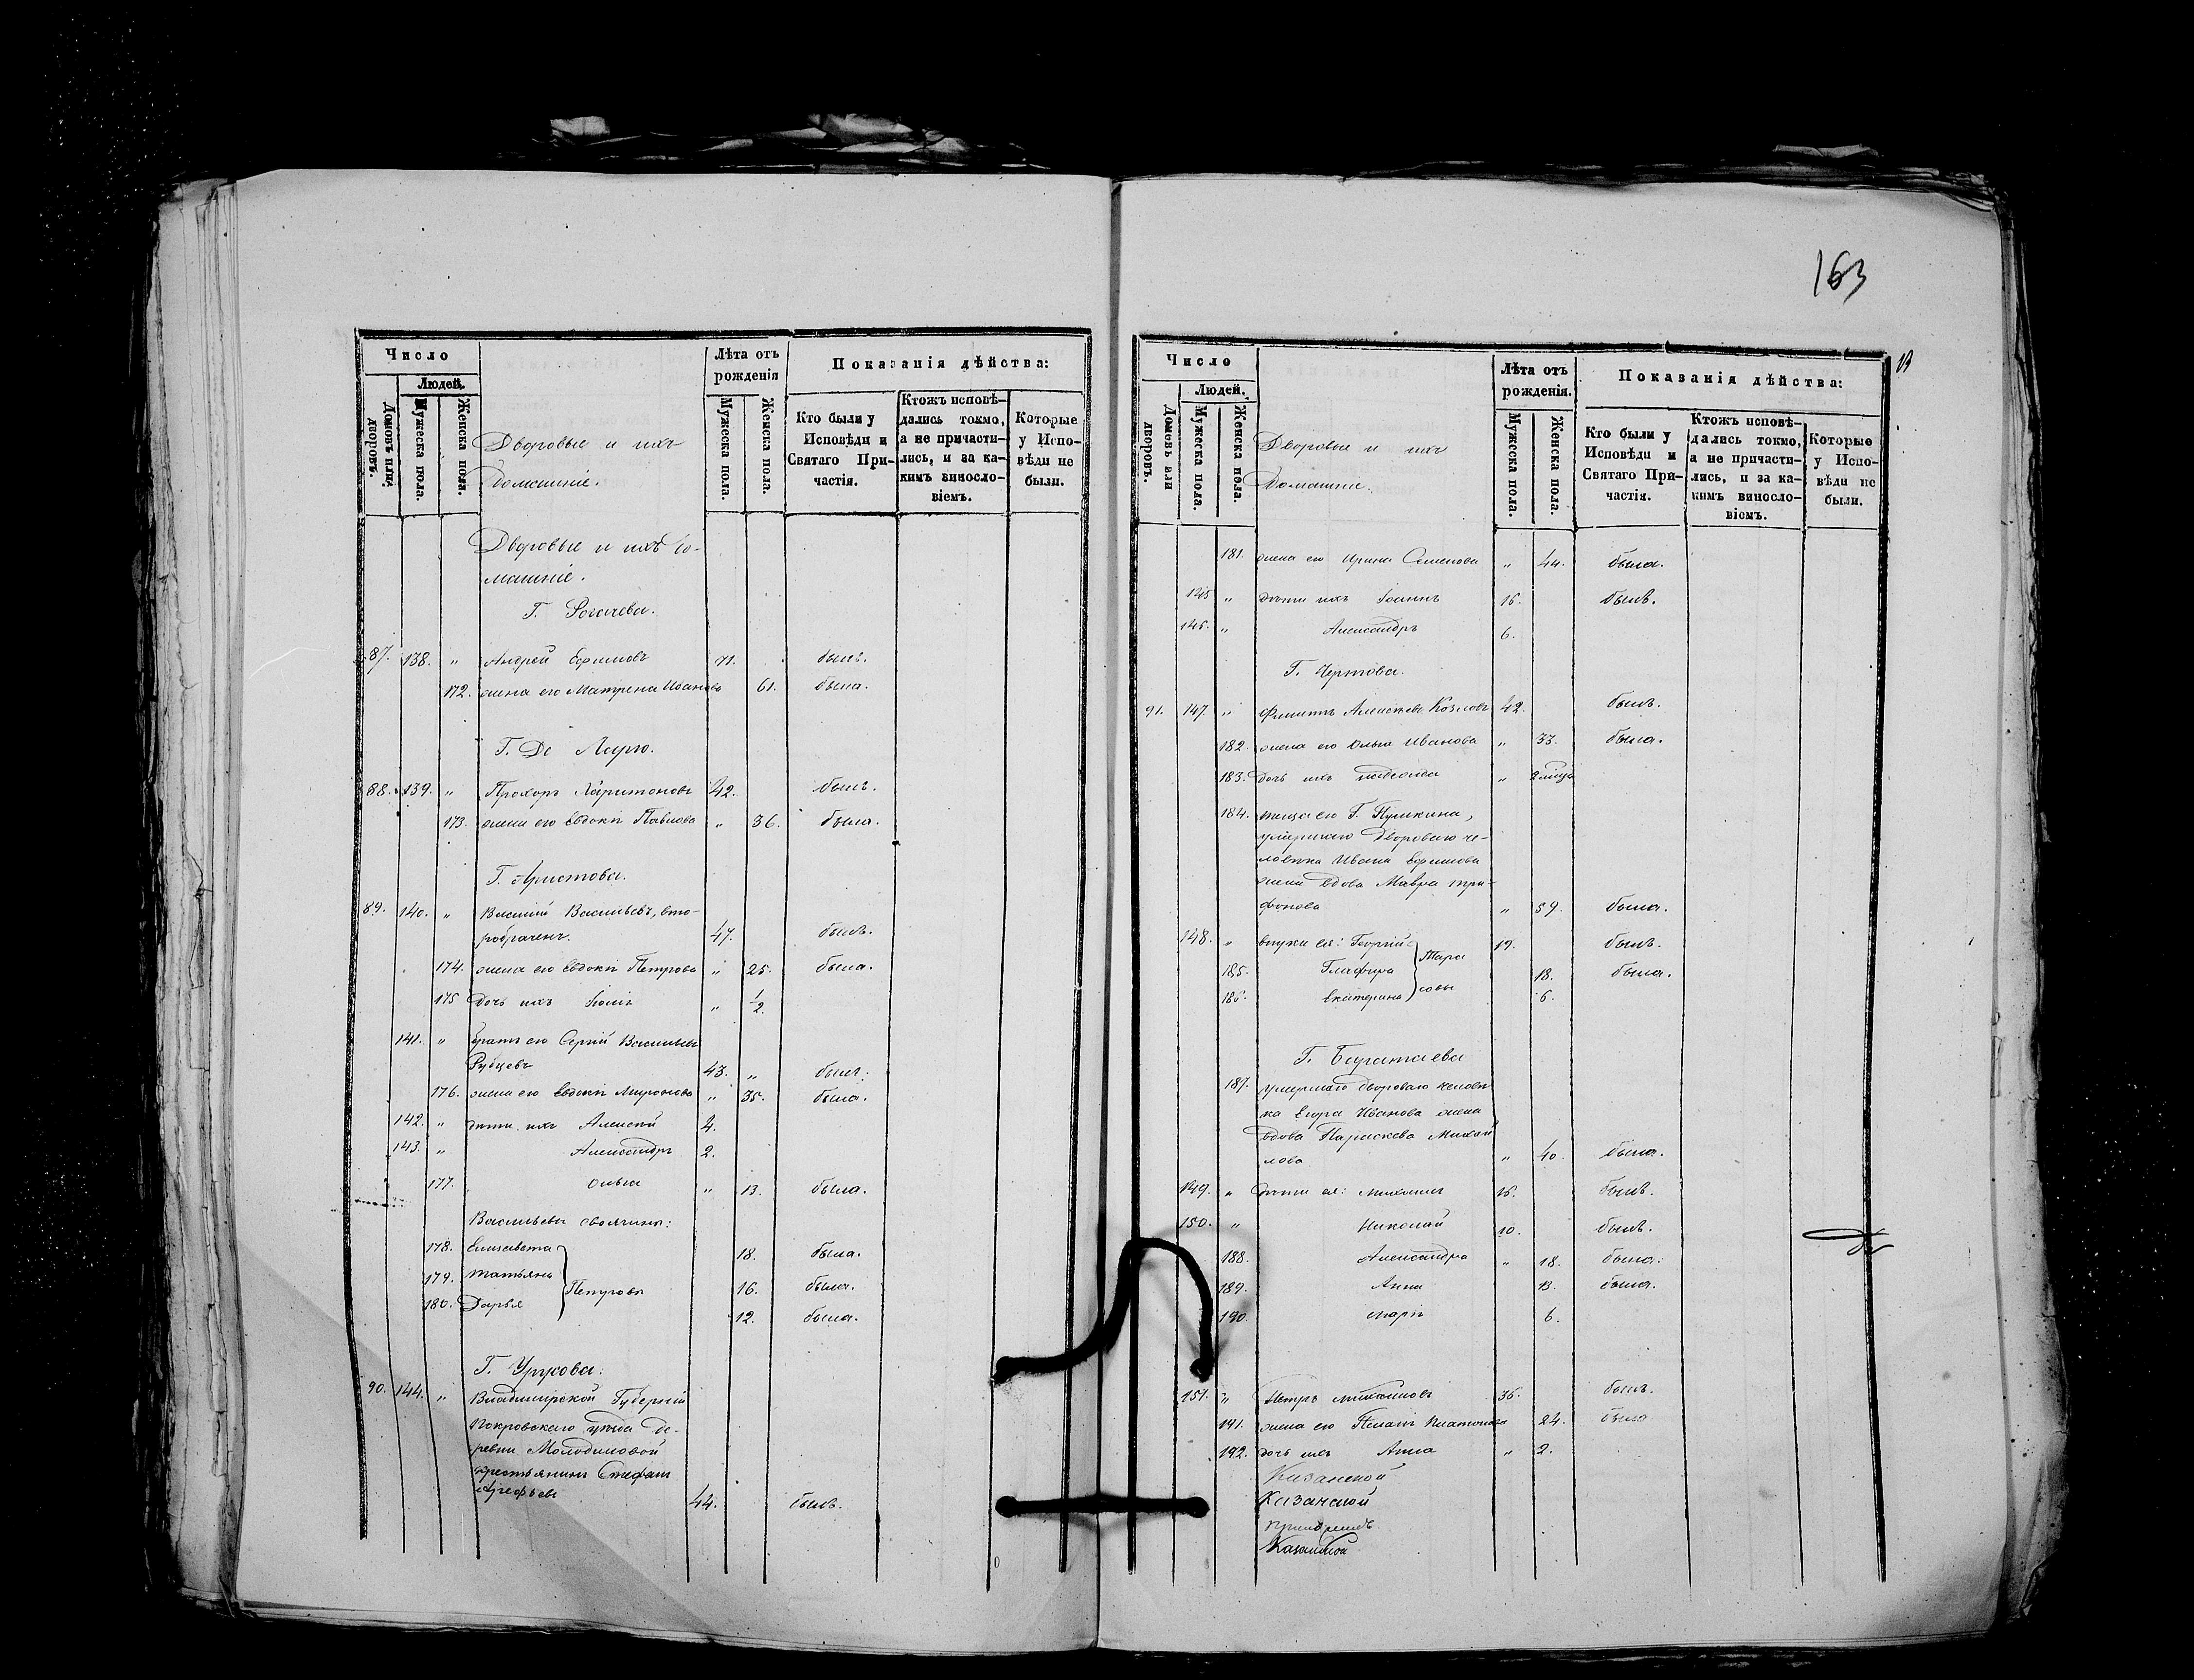 163
Число
Людей.
Домовъ или дворовъ.
Мужеска пола.
Женска пола.
Дворовые и ихъ
Домашніе.
Лѣта отъ рожденія
Мужеска пола.
Женска пола.
Показанія дѣйства:
Кто были у Исповѣди и Святаго Причастія.
Ктожъ исповѣдались токмо, а не причастились, и за какимъ винословіемъ.
Которые у Исповѣди не были.
Дворовые и ихъ до-
машніе.
Г. Рогачева.
87. 138. " Андрей Ефимовъ 71. былъ.
172. жена его Матрена Иванова 61. была.
Г. Де
88. 139. " Прохоръ Харитоновъ 42. былъ.
173. жена его Евдокія Павлова " 36. была.
Г. Аристова.
89. 140. " Василій Васильевъ, вто-
робрачен. 47. былъ.
174. жена его Евдокія Петрова " 25. была.
175 дочь ихъ " 1/2.
141. " братъ его Сергій Васильевъ
Рубцовъ 43. " былъ.
176. жена его Евдокія Миронова " 35. была.
142. " дѣти ихъ Алексѣй 4.
143. " Александръ 2.
177. Ольга " 13. была.
Васильева своячины:
178. Елисавета 18. была.
179. Татьяна Петровы 16. была.
180. Дарья 12. была.
Г.
90. 144. " Владимірской Губерніи
Покровскаго уѣзда де-
ревни Молодиловой
крестьянинъ Стефанъ
Арефьевъ 44. былъ.
Число
Людей.
Домовъ или дворовъ.
Мужеска пола.
Женска пола.
Дворовые и ихъ
Домашніе.
Лѣта отъ рожденія.
Мужеска пола.
Женска пола.
Показанія дѣйства:
Кто были у Исповѣди и Святаго Причастія.
Ктожъ исповѣдались токмо, а не причастились, и за какимъ винословіемъ.
Которые у Исповѣди не были.
181. жена его Ирина Семенова " 44. была.
145 " дѣти ихъ Іоаннъ 16. былъ.
146. " Александръ 6.
Г. Чертова.
91. 147. " Филиппъ Алексѣевъ Козловъ 42. былъ.
182. жена его Ольга Иванова " 33. была.
183. дочь ихъ Надежда "
184. теща его Г. Пушкина,
умершаго Двороваго че-
ловѣка Ивана Ефимова
жена вдова Мавра Три-
фонова " 59. была.
148. " внуки ея: Георгій 19. былъ.
185. Глафира Тара 18. была.
186. Екатерина совы 6.
Г. Баратаева
187. умершаго двороваго человѣ-
ка Егора Иванова жена
вдова Параскева Михай-
лова " 40. была.
149. " дѣти ея: Михаилъ 16. былъ.
150. " Николай 10. былъ.
188. Александра " 18. была.
189. Анна 13. была.
190. Марія 6.
151. " Петръ Михайловъ 36. былъ.
191. жена его Пелагія Платонова 24. была
192. дочь ихъ Анна " 2.
Казанской
Казанской
Казанской